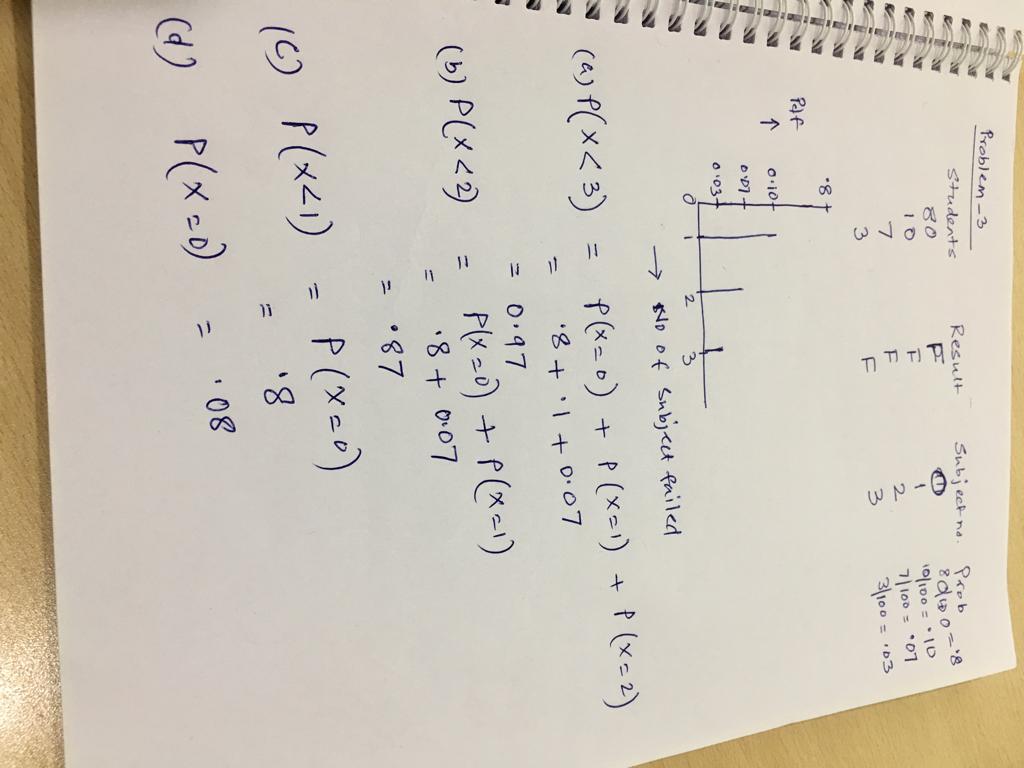 Problem-3
Students Result Subject no. Prob
80 P 0 80/100 = .8
10 F 1 10/100 = .10
7 F 2 7/100 = .07
3 F 3 3/100 = .03
Pdf
↑
.8
0.10
0.07
0.03
0 1 2 3
→ No of subject failed
(a) P(x<3) = P(x=0) + P(x=1) + P(x=2)
= .8 + .1 + 0.07
= 0.97
(b) P(x<2) = P(x=0) + P(x=1)
= .8 + 0.07
= .87
(c) P(x<1) = P(x=0)
= .8
(d) P(x=0) = .08